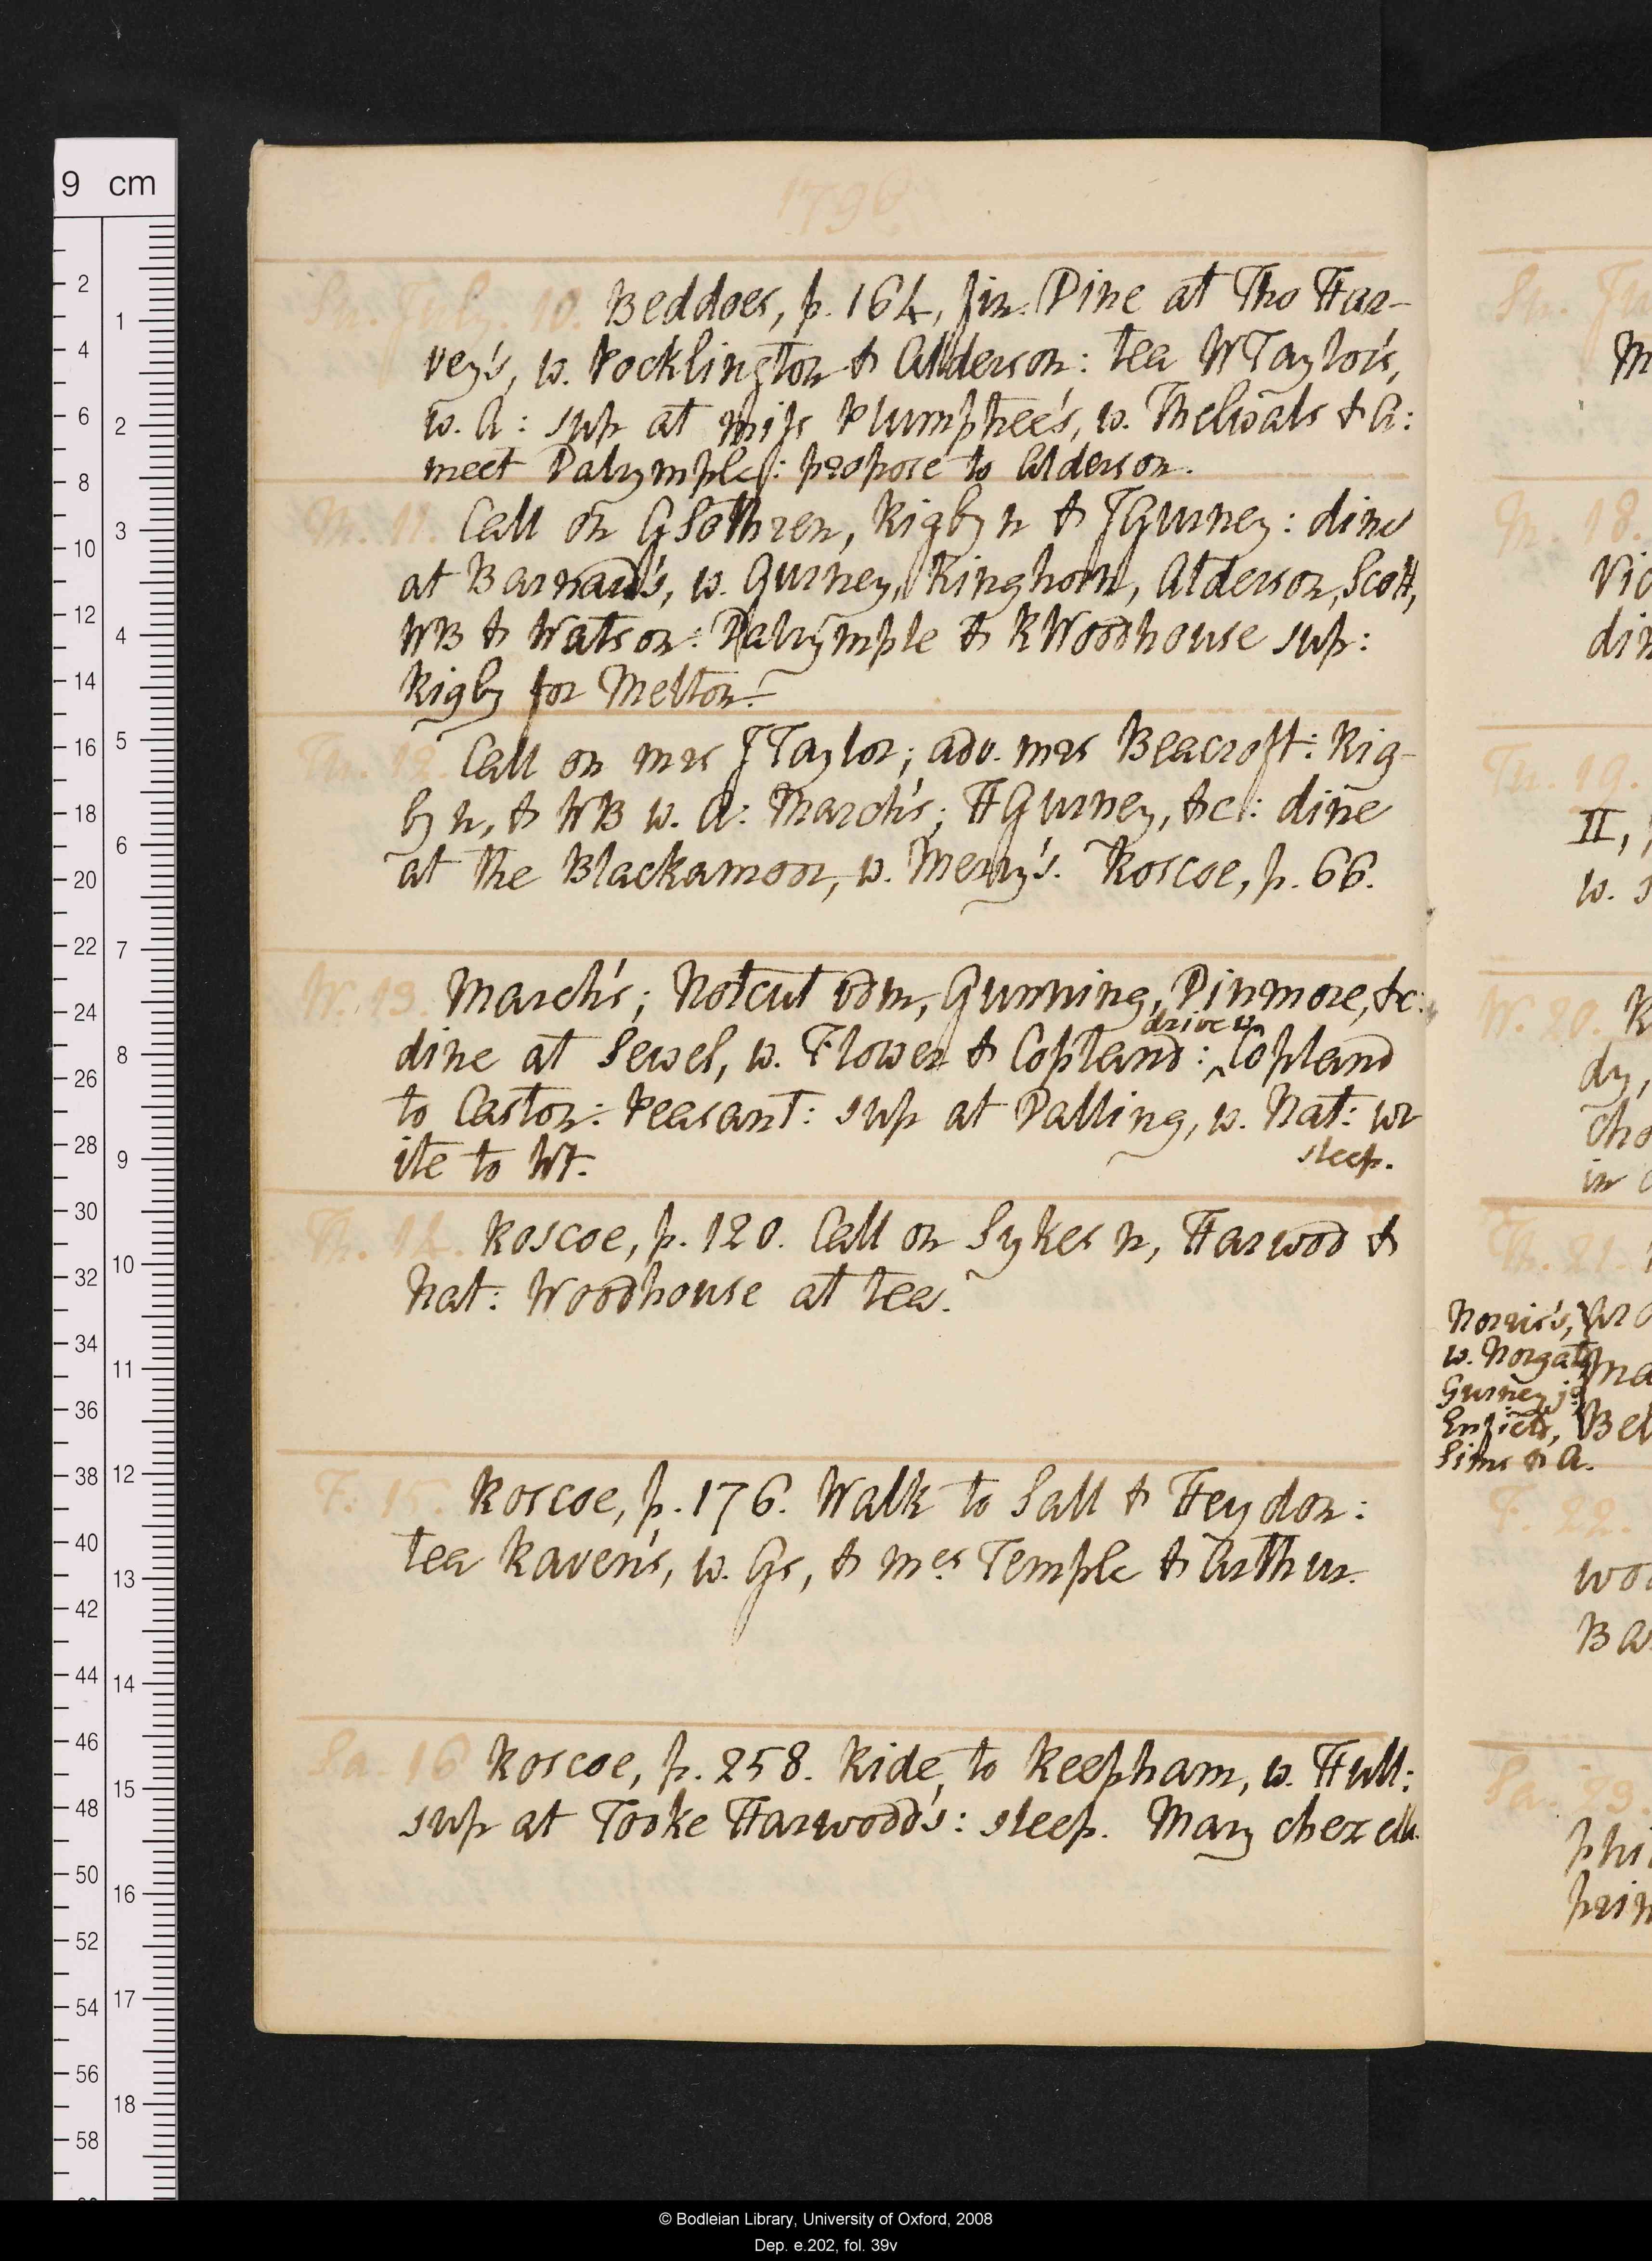 1796
Su. July. 10. Beddoes, p. 164, fin. Dine at Tho Har-
vey's, w. Pocklington & Alderson: tea W Taylor's,
w. A: sup at miss Plumptree's, w. Thelwals & A:
meet Dalrymple: propose to Alderson.
M. 11. Call on G Sothren, Rigby n & J Gurney: dine
at Barnard's, w. Gurney, Kinghorn, Alderson, Scott,
WB & Watson: Dalrymple & R Woodhouse sup:
Rigby for Melton.
Tu. 12. Call on mrs J Taylor; adv. mrs Beacroft: Rig-
by n, & WB w. A: March's; H Gurney, &c: dine
at the Blackamoor, w. Merry's. Roscoe, p. 66.
W. 13. March's; Notcut Gunning, Dinmore, &c:
drive w.
dine at Sewel, w. Flower & Copland: ‸Copland
to Castor: Peasant: sup at Dalling, w. Nat: wr
ite to
sleep.
Th. 14. Roscoe, p. 120. Call on Sykes n, Harwood &
Nat: Woodhouse at tea.
F. 15. Roscoe, p. 176. Walk to Sall & Heydon:
tea Raven's, w. Gs, & mrs Temple & Arthur.
Sa. 16 Roscoe, p. 258. Ride, to Reepham, w. Hull:
sup at Tooke Harwood's: sleep. Mary chez elle.
Su.
M. 18.
din
Tu. 19.
II,
w.
W. 20.
dy,
in
Th. 21.
Norris's,
w. Norgate
Gurney jr
Enfield,
Sims & A.
F. 22.
Sa. 23.
9 cm
2
4
6
8
10
12
14
16
18
20
22
24
26
28
30
32
34
36
38
40
42
44
46
48
50
52
54
56
58
1
2
3
4
5
6
7
8
9
10
11
12
13
14
15
16
17
18
© Bodleian Library, University of Oxford, 2008
Dep. e.202, fol. 39v